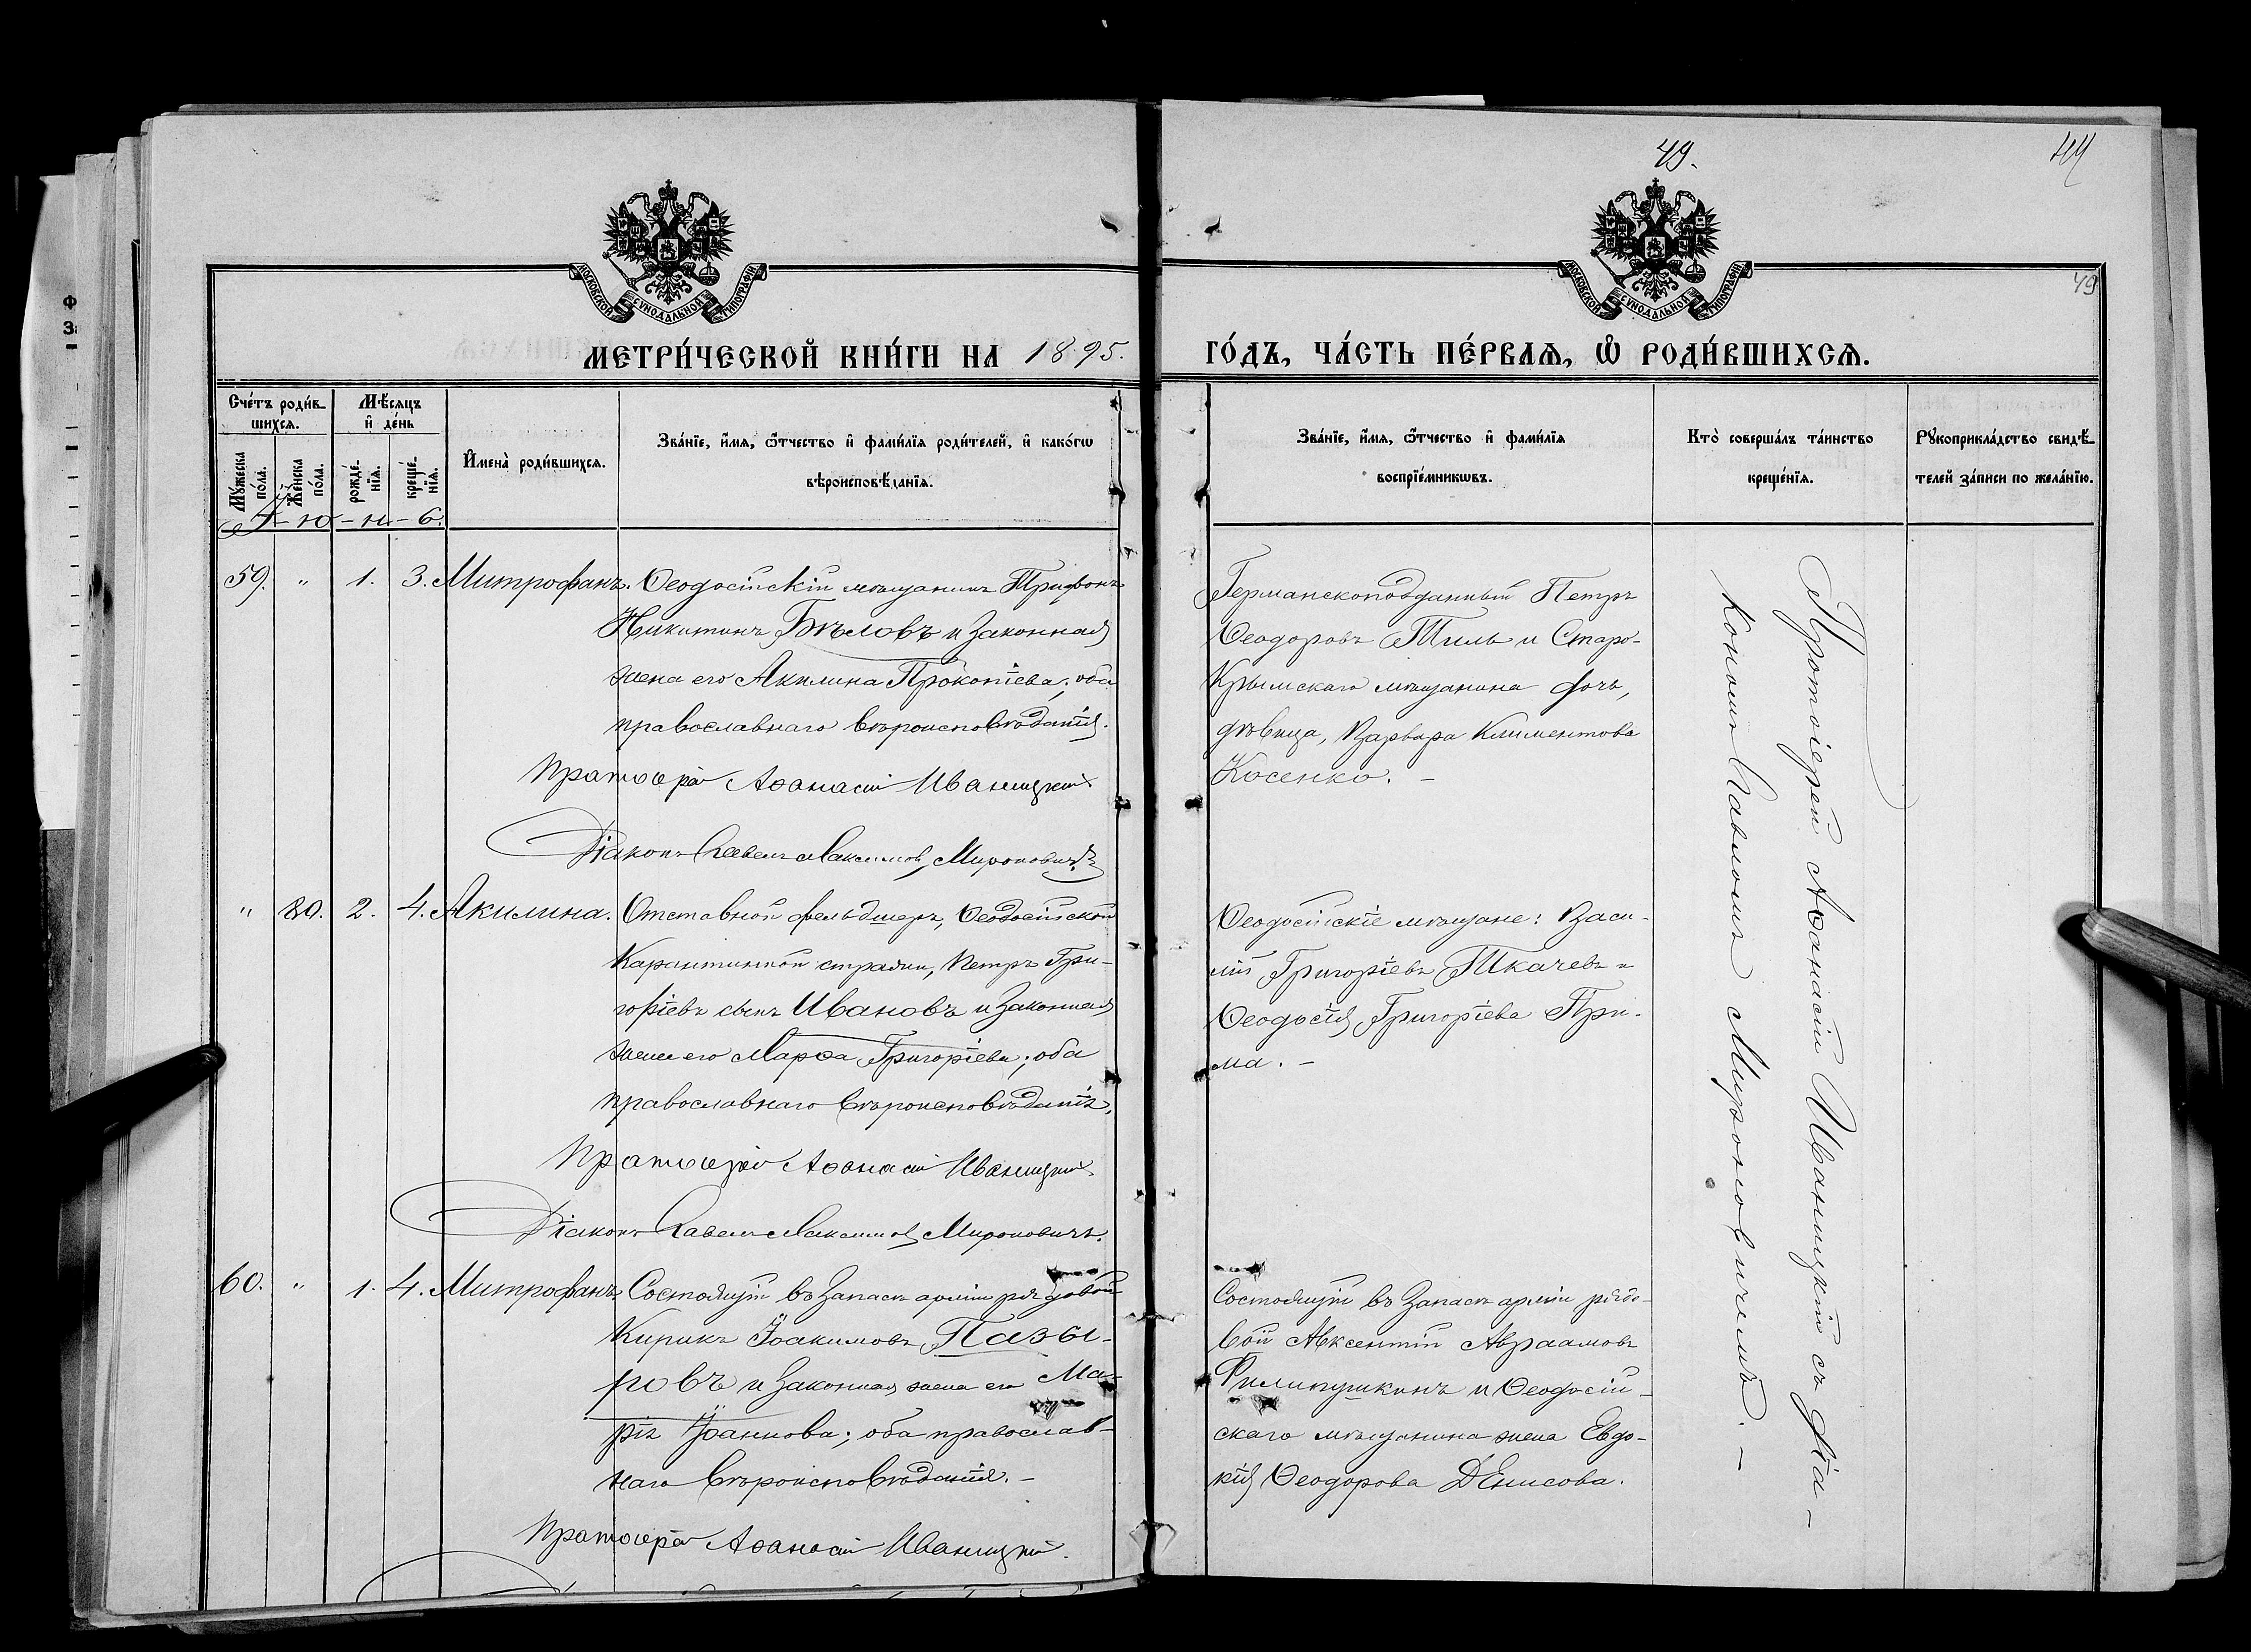 49.
44
49
МОСКОВСКОЙ СѴНОДАЛЬНОЙ ТИПОГРАФІИ
МОСКОВСКОЙ СѴНОДАЛЬНОЙ ТИПОГРАФІИ
МЕТРИ́ЧЕСКОЙ КНИ́ГИ НА 1895.
ГО́ДЪ, ЧА́СТЬ ПЕ́РВАѦ, Ѡ҆ РОДИ́ВШИХСѦ.
Сче́тъ роди́в-
шихсѧ.
Мꙋ́жеска по́ла.
Же́нска по́ла.
Мѣ́сѧцъ
и҆ де́нь
рожде́-нїѧ.
креще́-нїѧ.
И҆мена̀ роди́вшихсѧ.
Зва́нїе, и҆́мѧ, ѻ҆́тчество и҆ фами́лїѧ роди́телей, и҆ како́гѡ
вѣроисповѣ́данїѧ.
Зва́нїе, и҆́мѧ, ѻ҆́тчество и҆ фами́лїѧ
воспрїе́мникѡвъ.
Кто̀ соверша́лъ та́инство
креще́нїѧ.
Рꙋкоприкла́дство свидѣ́-
телей за́писи по жела́нїю.
59. " 1. 3. Митрофанъ. Ѳеодосійскій мѣщанинъ Трифонъ
Никитинъ Бѣловъ и законная
жена его Акилина Прокопіева; оба
православнаго вѣроисповѣданія.
Протоіерей Аѳанасій Иваницкій
Діаконъ Павелъ Максимовъ Мироновичъ
Германскоподданный Петръ
Ѳеодоровъ Тиль и Старо-
Крымскаго мѣщанина дочь,
дѣвица, Варвара Климентова
Косенко. –
" 80. 2. 4. Акилина. Отставной фельдшеръ, Ѳеодосійской
Карантинной стражи, Петръ Гри-
горіевъ сынъ Ивановъ и законная
жена его Марѳа Григоріева; оба
православнаго вѣроисповѣданія.
Протоіерей Аѳанасій Иваницкій.
Діаконъ Павелъ Максимовъ Мироновичъ.
Ѳеодосійскіе мѣщане: Васи-
лій Григоріевъ Ткачевъ и
Ѳеодосія Григоріева При-
ма. –
60. " 1. 4. Митрофанъ. Состоящій въ запасѣ арміи рядовой
Кирикъ Іоакимовъ Пазы-
ровъ и законная жена его Ма-
рія Іоаннова; оба православ-
наго вѣроисповѣданія. –
Протоіерей Аѳанасій Иваницкій.
Состоящій въ запасѣ арміи рядо-
вой Авксентій Авраамовъ
Филипушкинъ и Ѳеодосій-
скаго мѣщанина жена Евдо-
кія Ѳеодорова Денисова.
Протоіерей Аѳанасій Иваницкій съ діа-
кономъ Павломъ Мироновичемъ. –